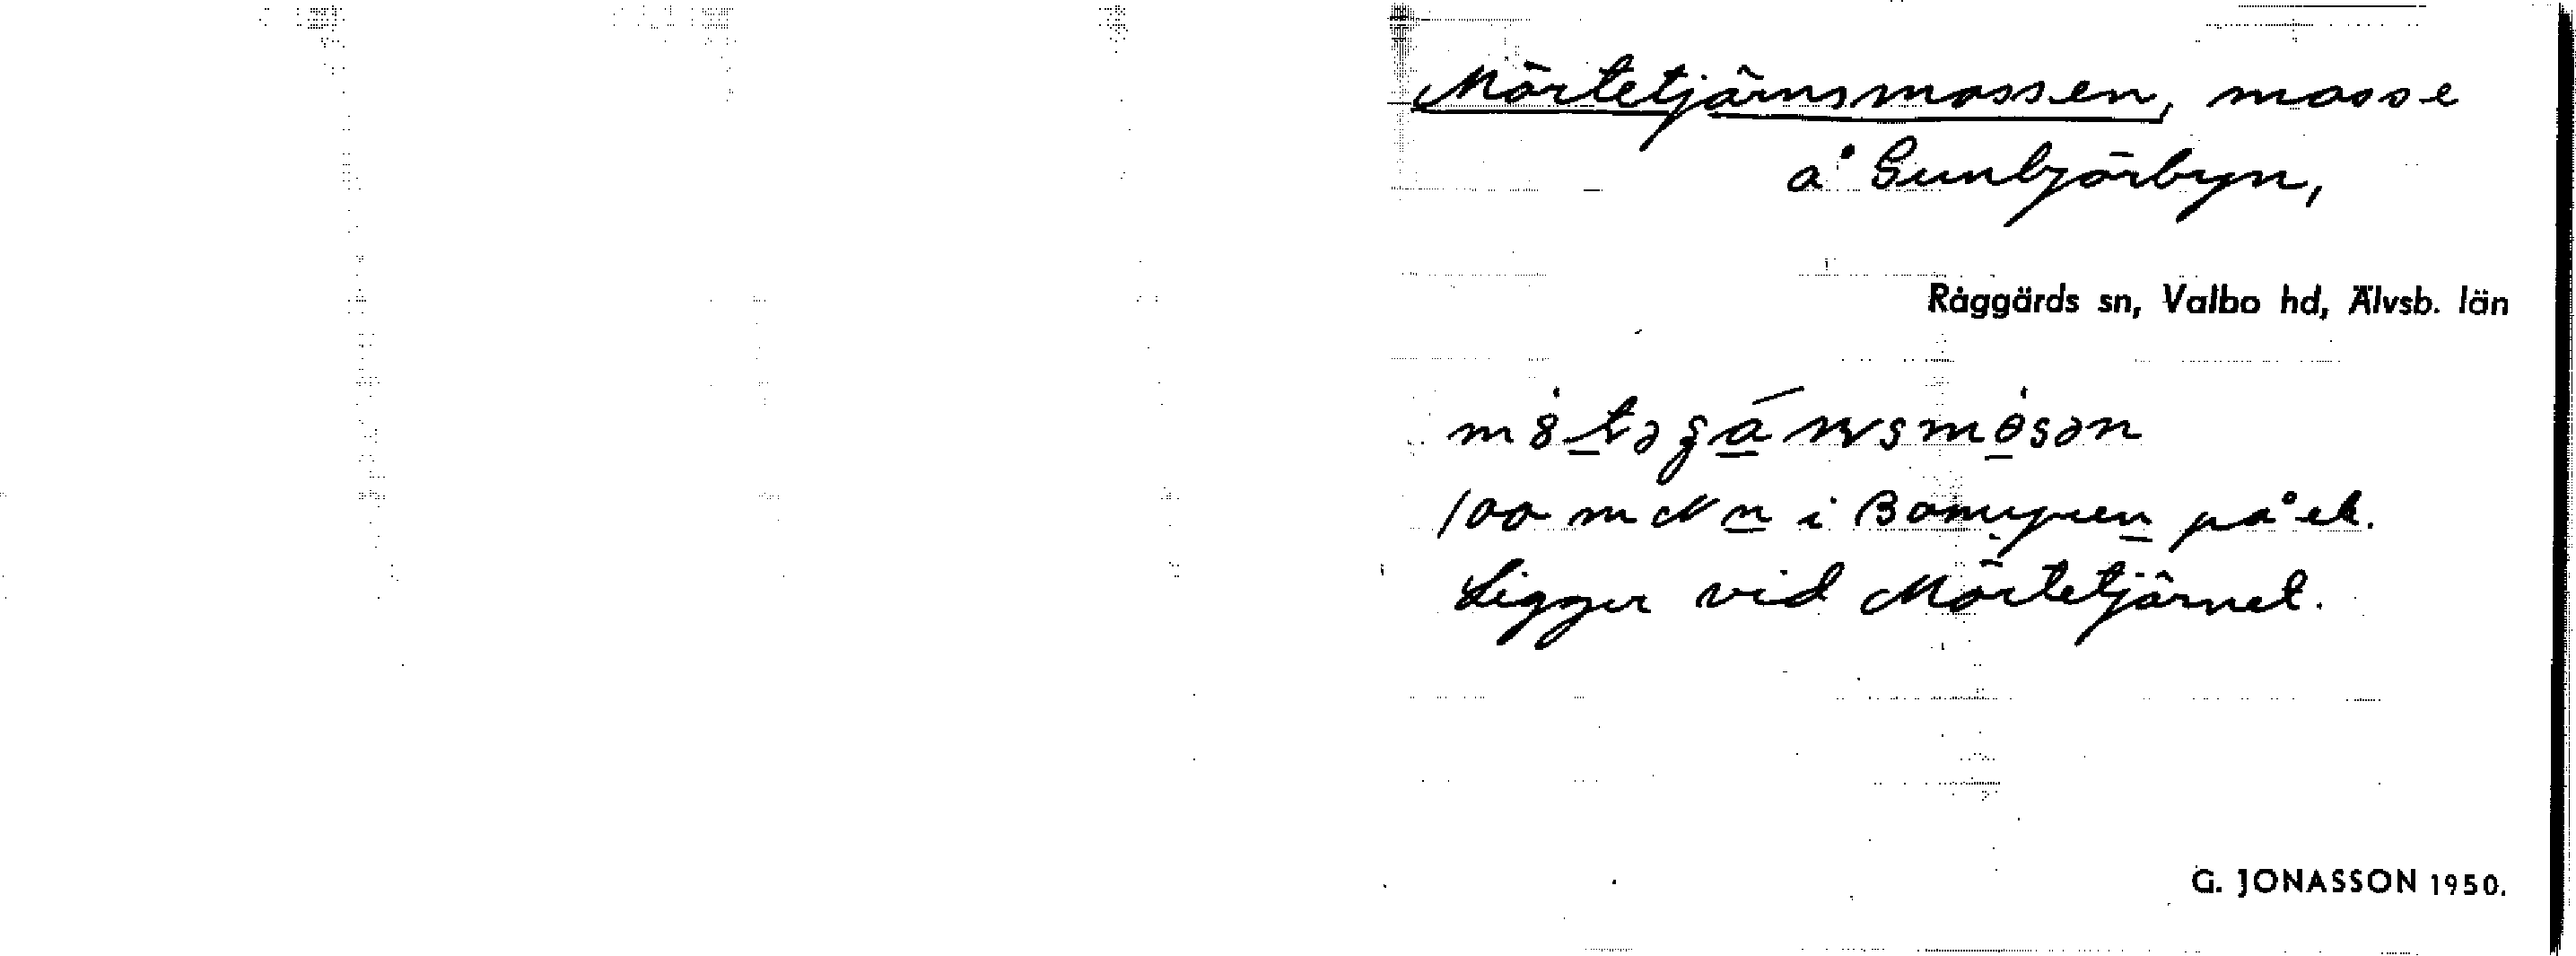 Mörtetjärnsmossen, mosse
å Gunbjörbyn,
Råggärds sn, Valbo hd, Älvsb. län
100 m N n i på ek.
Ligger vid Mörtetjärnet.
G. JONASSON 1950.